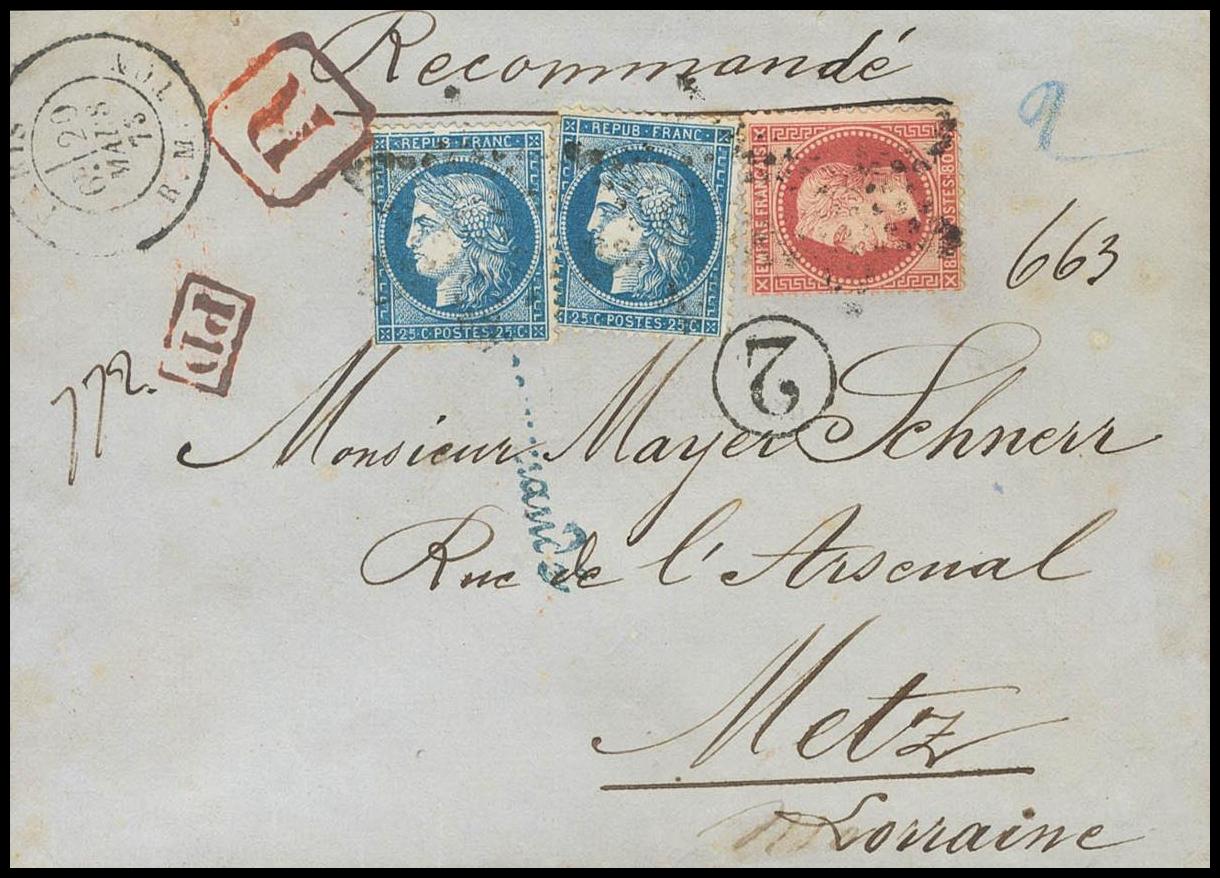 Recommandé
R
2
29
MARS
REPUB·FRANC
25·C·POSTES·25·C
REPUB·FRANC
25·C·POSTES·25·C
EMPIRE FRANÇAIS
POSTES 80
663
PD
772.
2
Monsieur Mayer Schnerr
Rue de l'Arsenal
Metz
Lorraine